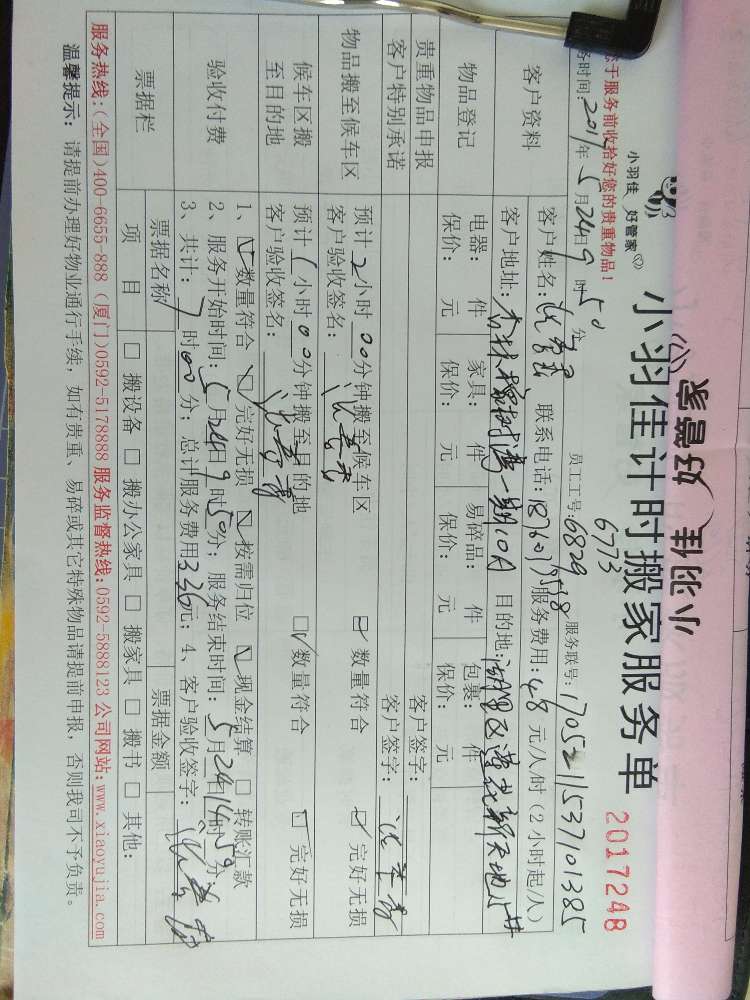 小羽佳 好管家
小羽佳 好管家
小羽佳计时搬家服务单
2017248
于服务前收拾好您的贵重物品！
员工工号：6829 服务联号：1705211537101385
6773
务时间：2017年5月24日9时50分
客户资料
客户姓名： 联系电话： 服务费用：48元/人/时（2小时起/人）
客户地址： 一期10A 目的地：
物品登记
电器： 件 家具： 件 易碎品： 件 包裹： 件
保价： 元 保价： 元 保价： 元 保价： 元
贵重物品申报
客户签字：
客户特别承诺
客户签字：
物品搬至候车区
预计2小时00分钟搬至候车区 ☑数量符合 ☑完好无损
客户验收签名：
候车区搬至目的地
预计1小时00分钟搬至目的地 ☑数量符合 ☑完好无损
客户验收签名：
验收付费
1、☑数量符合 ☑完好无损 ☑按需归位 ☑现金结算 □转账汇款
2、服务开始时间：5月24日9时50分；服务结束时间：5月24日 时 分
3、共计：7时00分；总计服务费用336元；4、客户验收签字：
票据栏
票据名称 票据金额
项目 □搬设备 □搬办公家具 □搬家具 □搬书 □其他：
服务热线：(全国)400-6655-888 (厦门)0592-5178888 服务监督热线：0592-5888123 公司网站：www.xiaoyujia.com
温馨提示：请提前办理好物业通行手续，如有贵重、易碎或其它特殊物品请提前申报，否则我司不予负责。